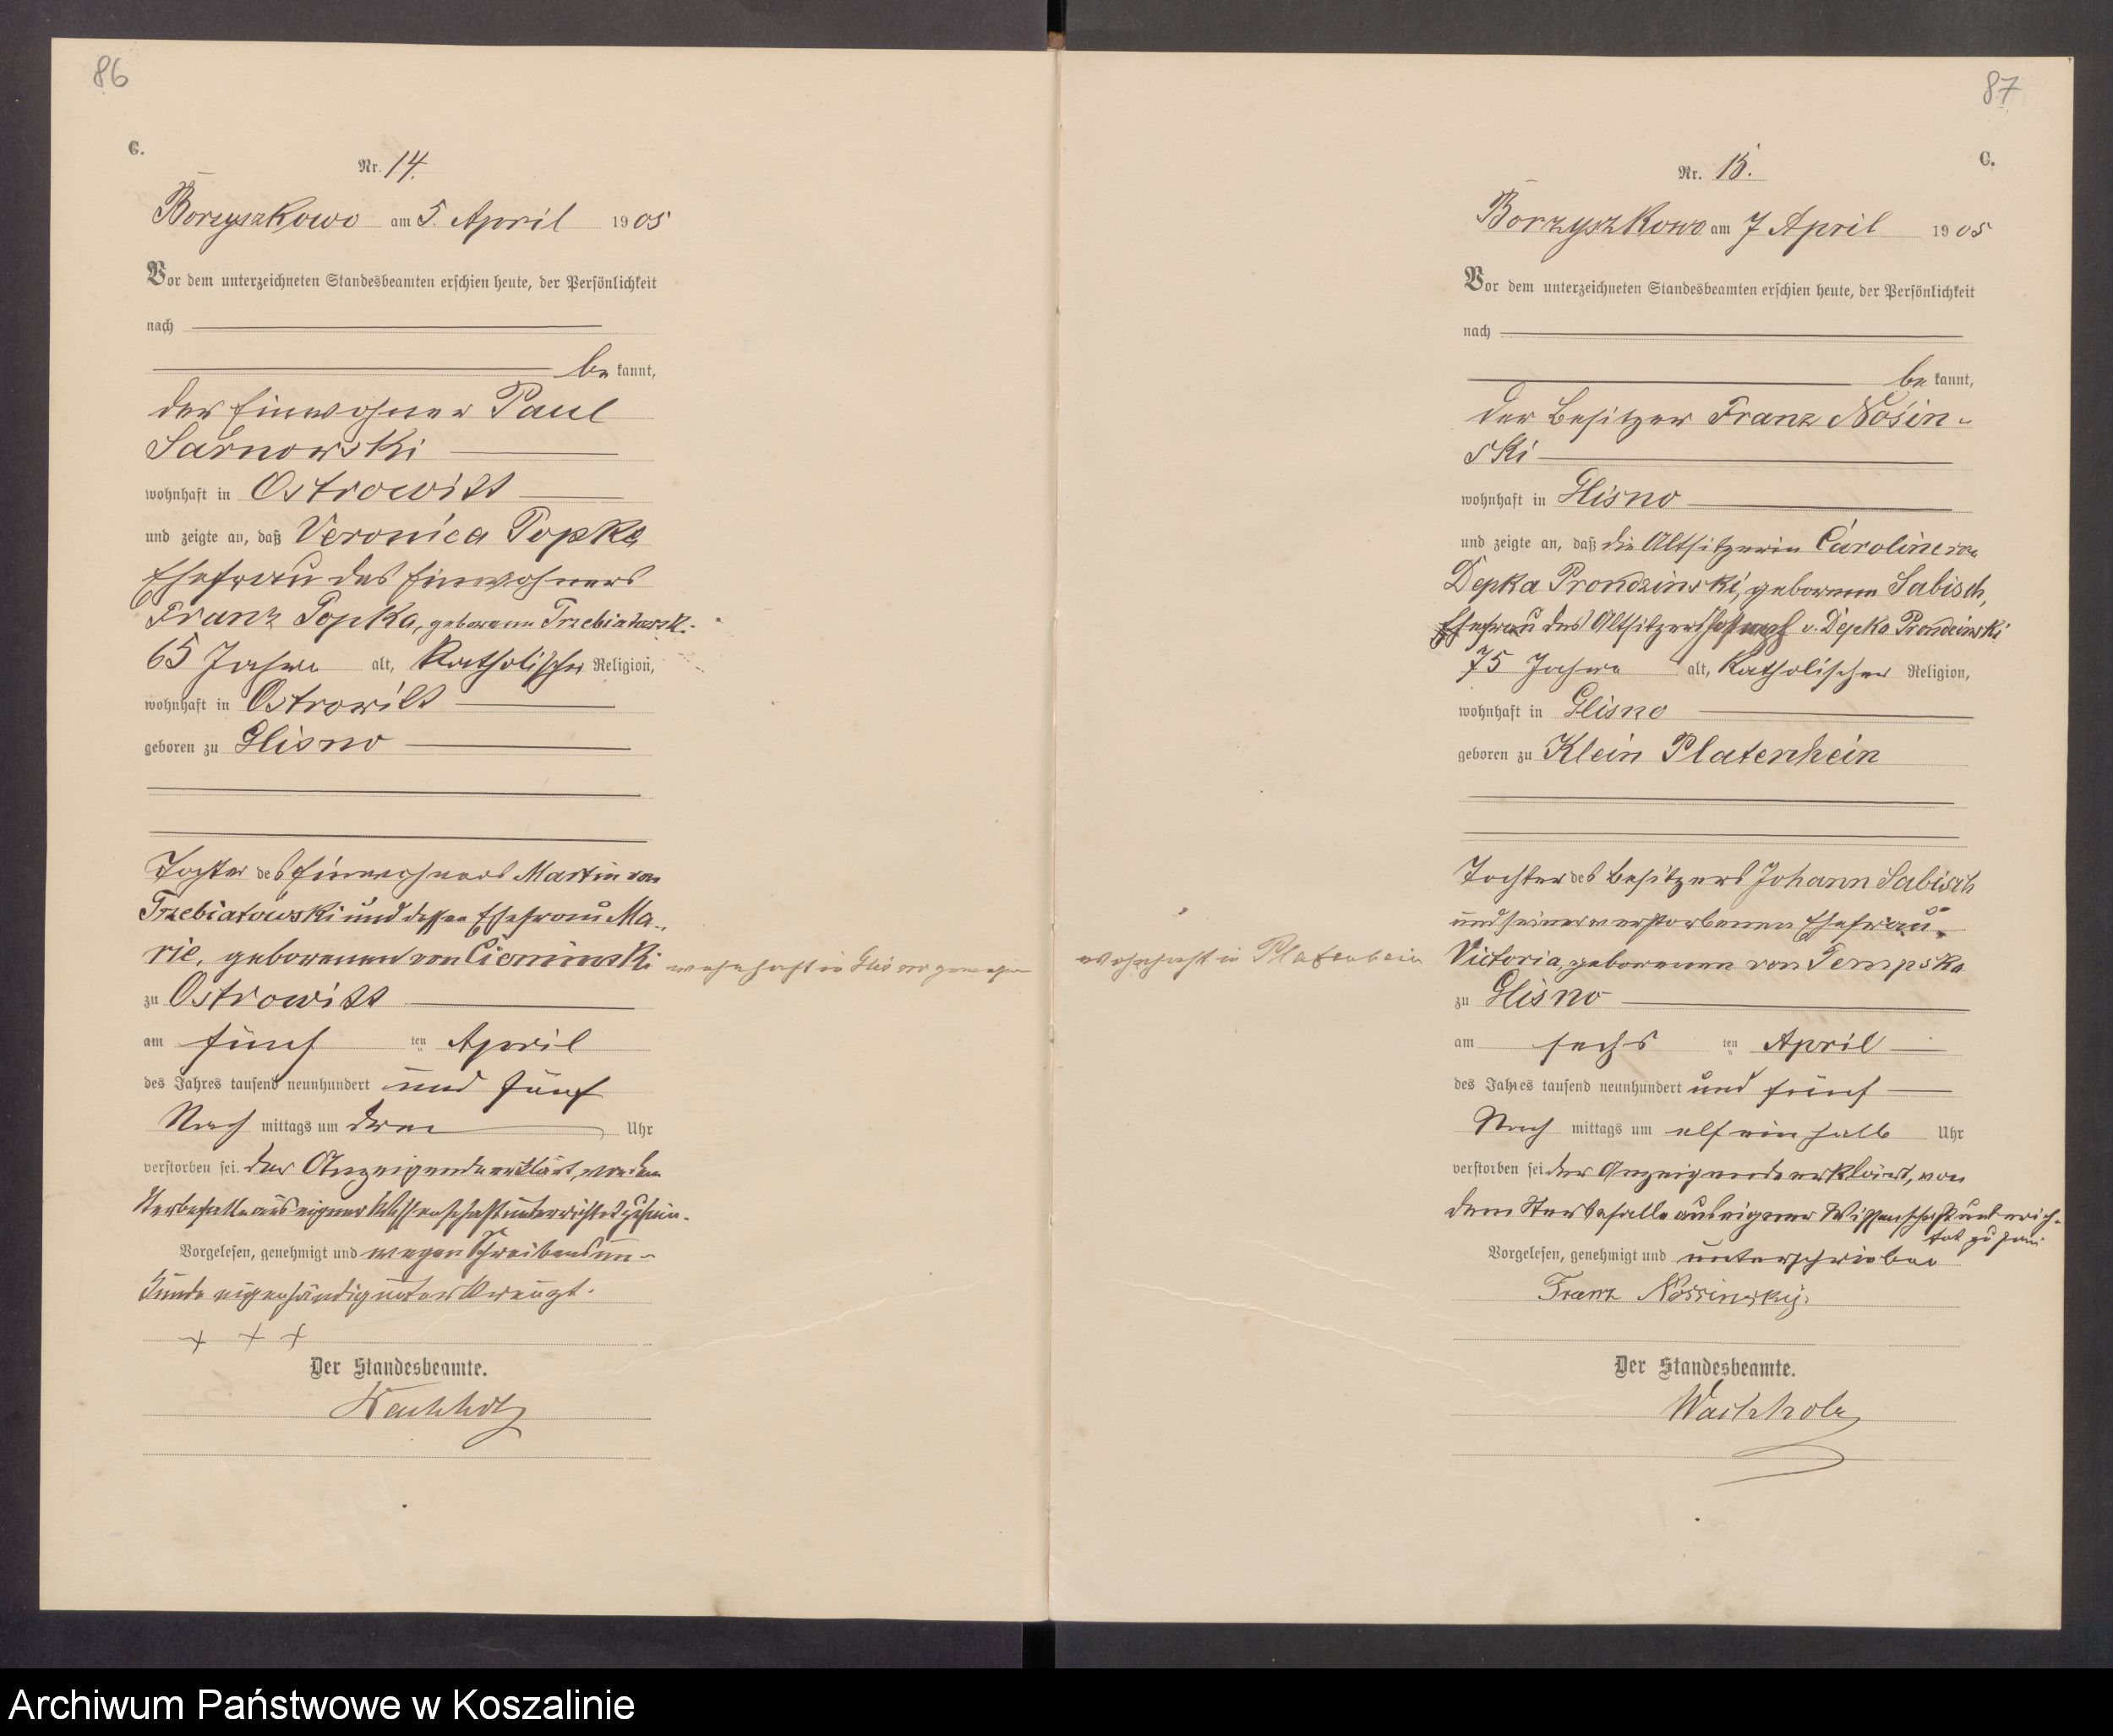 86
C.
Nr. 14.
Borzyszkowo am 5. April 1905
Vor dem unterzeichneten Standesbeamten erschien heute, der Persönlichkeit
nach
be kannt,
der Einwohner Paul
Sarnowski
wohnhaft in Ostrowitt
und zeigte an, daß Veronica Popka
Ehefrau des Einwohners
Franz Popka, geborenen Trzebiatowski
65 Jahre alt, Katholischer Religion,
wohnhaft in Ostrowitt
geboren zu Glisno
Tochter des Einwohners Martin von
Trzebiatowski und dessen Ehefrau Ma-
rie, geborenen von Cieminski wohnhaft in Glisno gewesen
zu Ostrowitt
am fünf ten April
des Jahres tausend neunhundert und fünf
Nach mittags um drei Uhr
verstorben sei. Der Anzeigende erklärt, von dem
Sterbefalle aus eigner Wissenschaft unterrichtet zu sein.
Vorgelesen, genehmigt und wegen Schreibensun-
kunde eigenhändig unterkreuzt.
+ + +
Der Standesbeamte.
Wachholz
87
C.
Nr. 15.
Borzyszkowo am 7 April 1905
Vor dem unterzeichneten Standesbeamten erschien heute, der Persönlichkeit
nach
be kannt,
der Besitzer Franz Nosin-
ski
wohnhaft in Glisno
und zeigte an, daß die Altsitzerin Caroline von
Depka Prondzinski, geborenen Sabisch,
Ehefrau des Altsitzers v. Depka Prondzinski
75 Jahre alt, Katholischer Religion,
wohnhaft in Glisno
geboren zu Klein Platenhein
Tochter des Besitzers Johann Sabisch
und seiner verstorbenen Ehefrau
wohnhaft in Platenhein Victoria, geborenen von Tempska
zu Glisno
am sechs ten April
des Jahres tausend neunhundert und fünf
Nach mittags um elf ein halb Uhr
verstorben sei der Anzeigende erklärt, von
dem Sterbefalle aus eigener Wissenschaft unterrich-
tet zu sein
Vorgelesen, genehmigt und unterschrieben
Franz Nossinsky.
Der Standesbeamte.
Wachholz
Archiwum Państwowe w Koszalinie